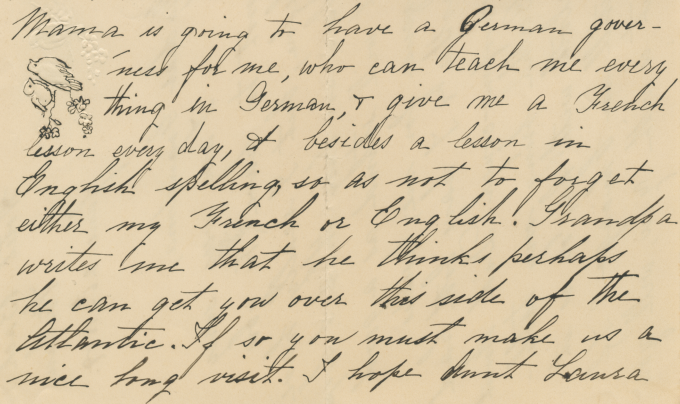 Mama is going to have a German gover-
ness for me, who can teach me every
thing in German, & give me a French
lesson every day, & besides a lesson in
English spelling, so as not to forget
either my French or English. Grandpa
writes me that he thinks perhaps
he can get you over this side of the
Atlantic. If so you must make us a
nice long visit. I hope Aunt Laura